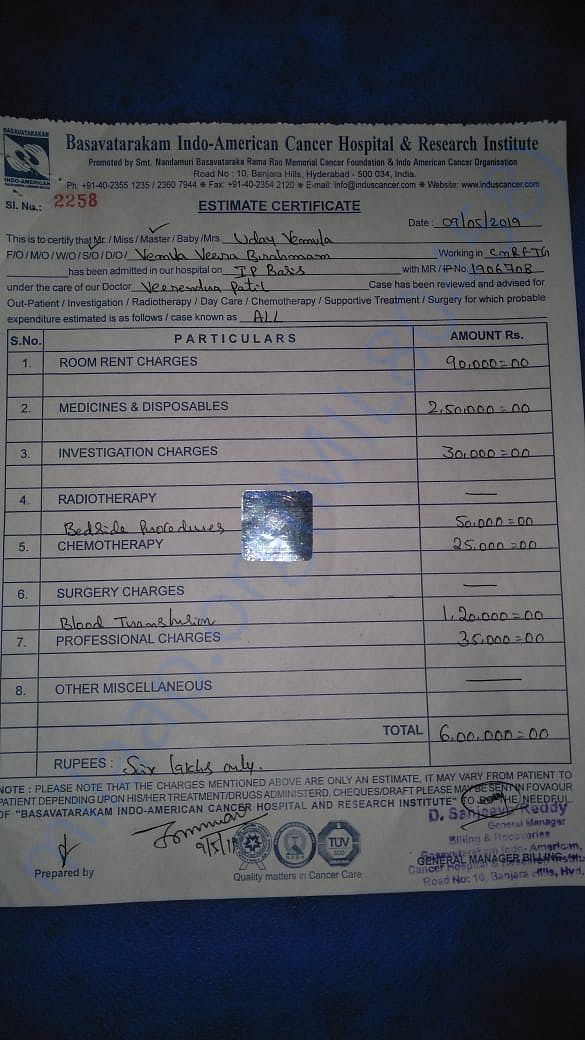 BASAVATARAKAM
INDO-AMERICAN
Basavatarakam Indo-American Cancer Hospital & Research Institute
Promoted by Smt. Nandamuri Basavataraka Rama Rao Memorial Cancer Foundation & Indo American Cancer Organisation
Road No : 10, Banjara Hills, Hyderabad - 500 034, India.
Ph: +91-40-2355 1235 / 2360 7944 Fax: +91-40-2354 2120 E-mail: info@induscancer.com Website: www.induscancer.com
Sl. No.: 2258
ESTIMATE CERTIFICATE
Date : 09/05/2019
This is to certify that Mr. / Miss / Master / Baby /Mrs. Uday Vemula
F/O / M/O / W/O / S/O / D/O / Vemula Veera Brahmam Working in
has been admitted in our hospital on IP Basis with MR / IP No. 1906708
under the care of our Doctor Veerendra Patil Case has been reviewed and advised for
Out-Patient / Investigation / Radiotherapy / Day Care / Chemotherapy / Supportive Treatment / Surgery for which probable
expenditure estimated is as follows / case known as ALL
S.No. PARTICULARS AMOUNT Rs.
1. ROOM RENT CHARGES 90,000=00
2. MEDICINES & DISPOSABLES 2,50,000=00
3. INVESTIGATION CHARGES 30,000=00
4. RADIOTHERAPY —
Bedside Procedures 50,000=00
5. CHEMOTHERAPY 25,000=00
6. SURGERY CHARGES —
Blood Transfusion 1,20,000=00
7. PROFESSIONAL CHARGES 35,000=00
8. OTHER MISCELLANEOUS —
TOTAL 6,00,000=00
RUPEES : Six lakhs only.
NOTE : PLEASE NOTE THAT THE CHARGES MENTIONED ABOVE ARE ONLY AN ESTIMATE, IT MAY VARY FROM PATIENT TO
PATIENT DEPENDING UPON HIS/HER TREATMENT/DRUGS ADMINISTERD. CHEQUES/DRAFT PLEASE MAY BE SENT IN FOVAOUR
OF "BASAVATARAKAM INDO-AMERICAN CANCER HOSPITAL AND RESEARCH INSTITUTE" TO THE NEEDFUL.
D. Sanjeev Reddy
General Manager
Billing &
9/5/19
TUV
GENERAL MANAGER BILLING
Road No: 10, Banjara Hills, Hyd.
Prepared by
Quality matters in Cancer Care